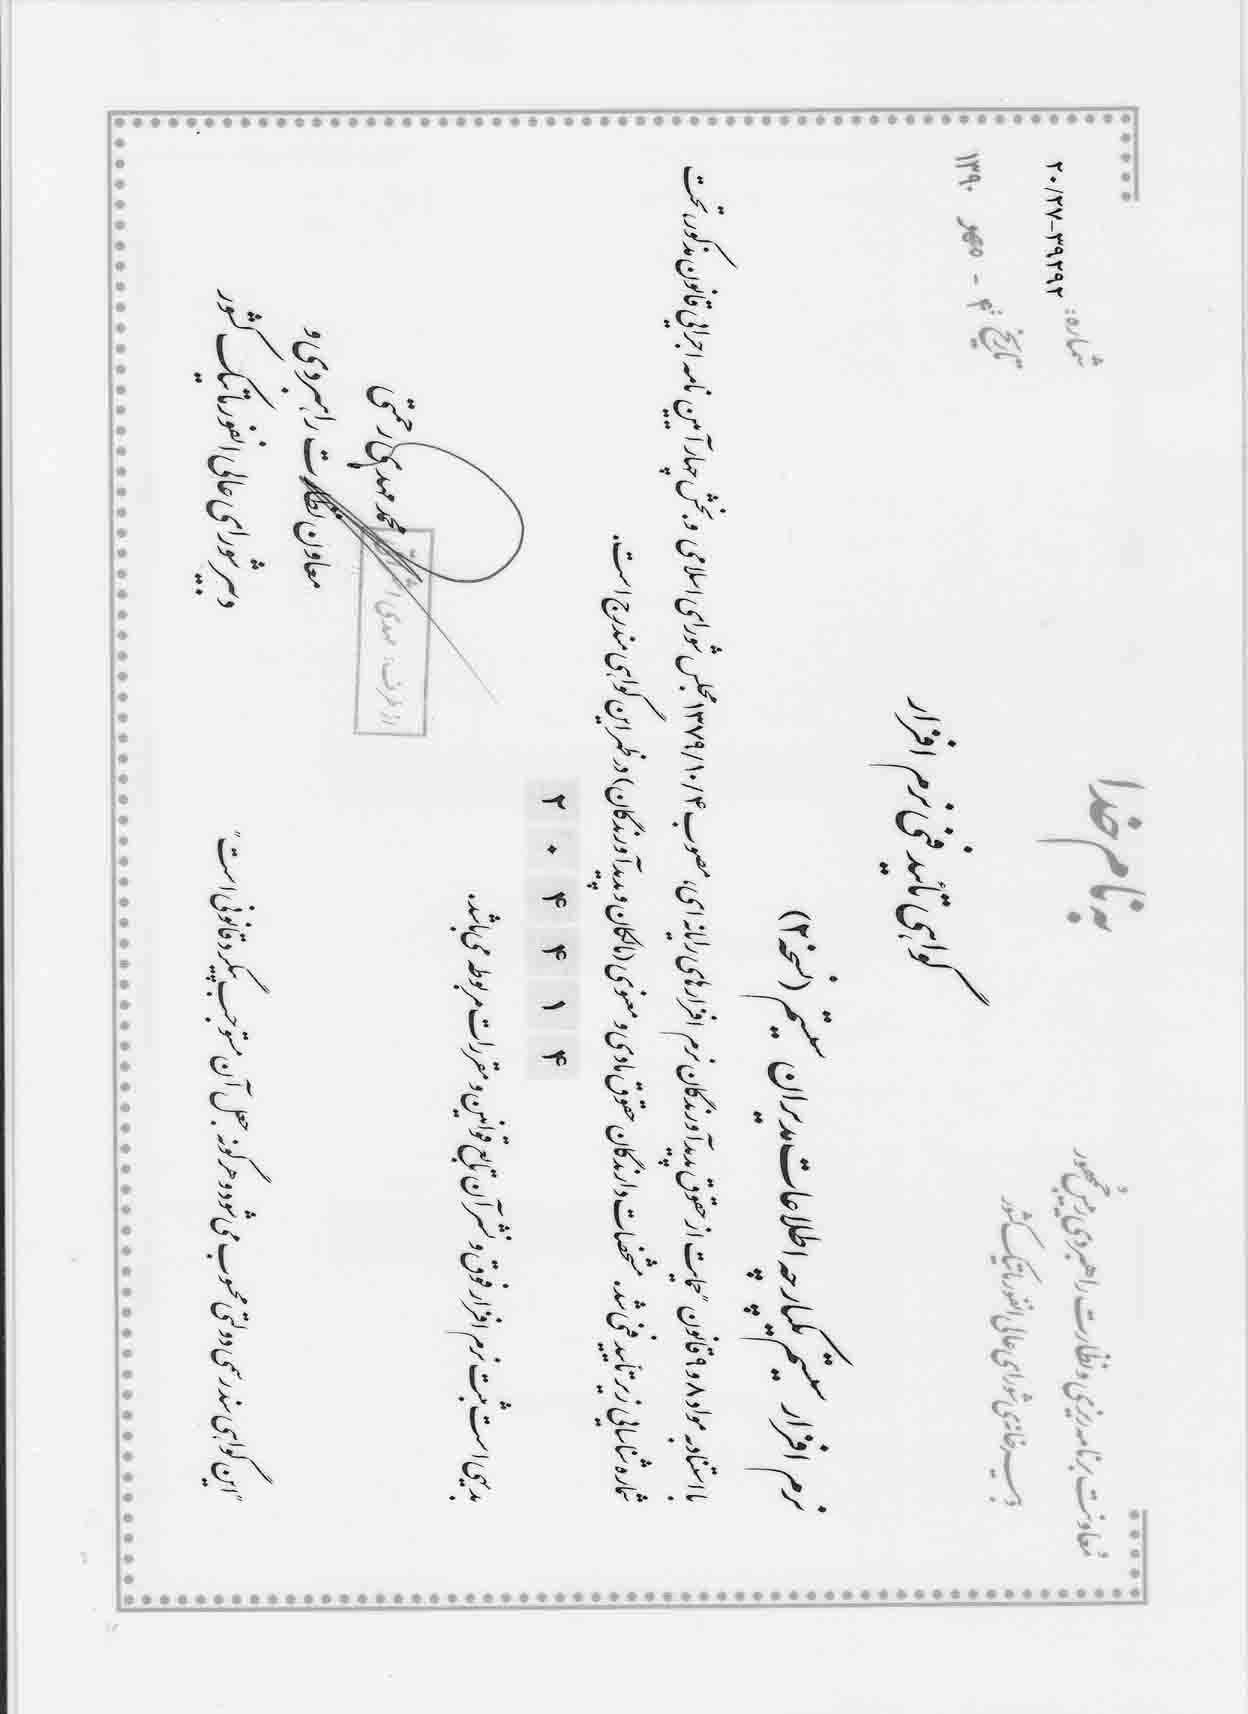 به نام خدا
معاونت برنامه ریزی و نظارت راهبردی رئیس جمهور
دبیرخانه‌ی شورای عالی انفورماتیک کشور
شماره: ۲۰/۲۷-۳۹۲۹۲
تاریخ: ۴ - مهر ۱۳۹۰
گواهی تائید فنی نرم افزار
نرم افزار سیستم یکپارچه اطلاعات مدیران سیستم (نسخه ۲)
با استناد به مواد ۸ و ۹ قانون "حمایت از حقوق پدیدآورندگان نرم افزارهای رایانه ای، مصوب ۱۳۷۹/۱۰/۴ مجلس شورای اسلامی و بخش چهار آئین نامه اجرائی قانون مذکور، تحت
شماره شناسائی زیر تائید فنی شد. مشخصات دارندگان حقوق مادی و معنوی (مالکان و پدیدآورندگان) در ظهر این گواهی مندرج است.
۲ ۰ ۴ ۴ ۱ ۴
بدیهی است ثبت نرم افزار فوق و نشر آن تابع قوانین و مقررات مربوطه می باشد.
محمد مهدی رحمتی
از طرف: مهدی
معاون نظارت راهبردی و
دبیر شورای عالی انفورماتیک کشور
"این گواهی سند رسمی دولتی محسوب می شود و هرگونه جعل آن مستوجب پیگرد قانونی است"